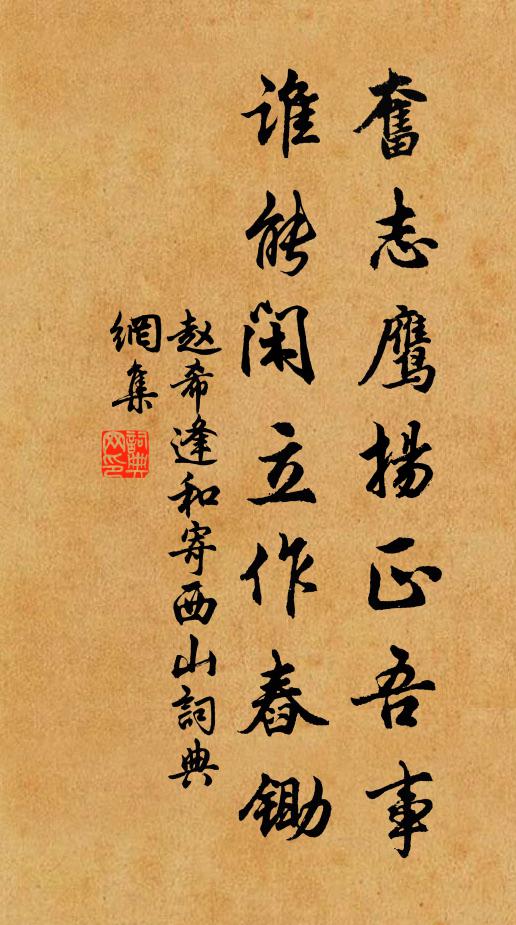 奮志鷹揚正吾事
誰能閑立作舂鋤
赵希逢和寄西山詞典
網集
詞典網印